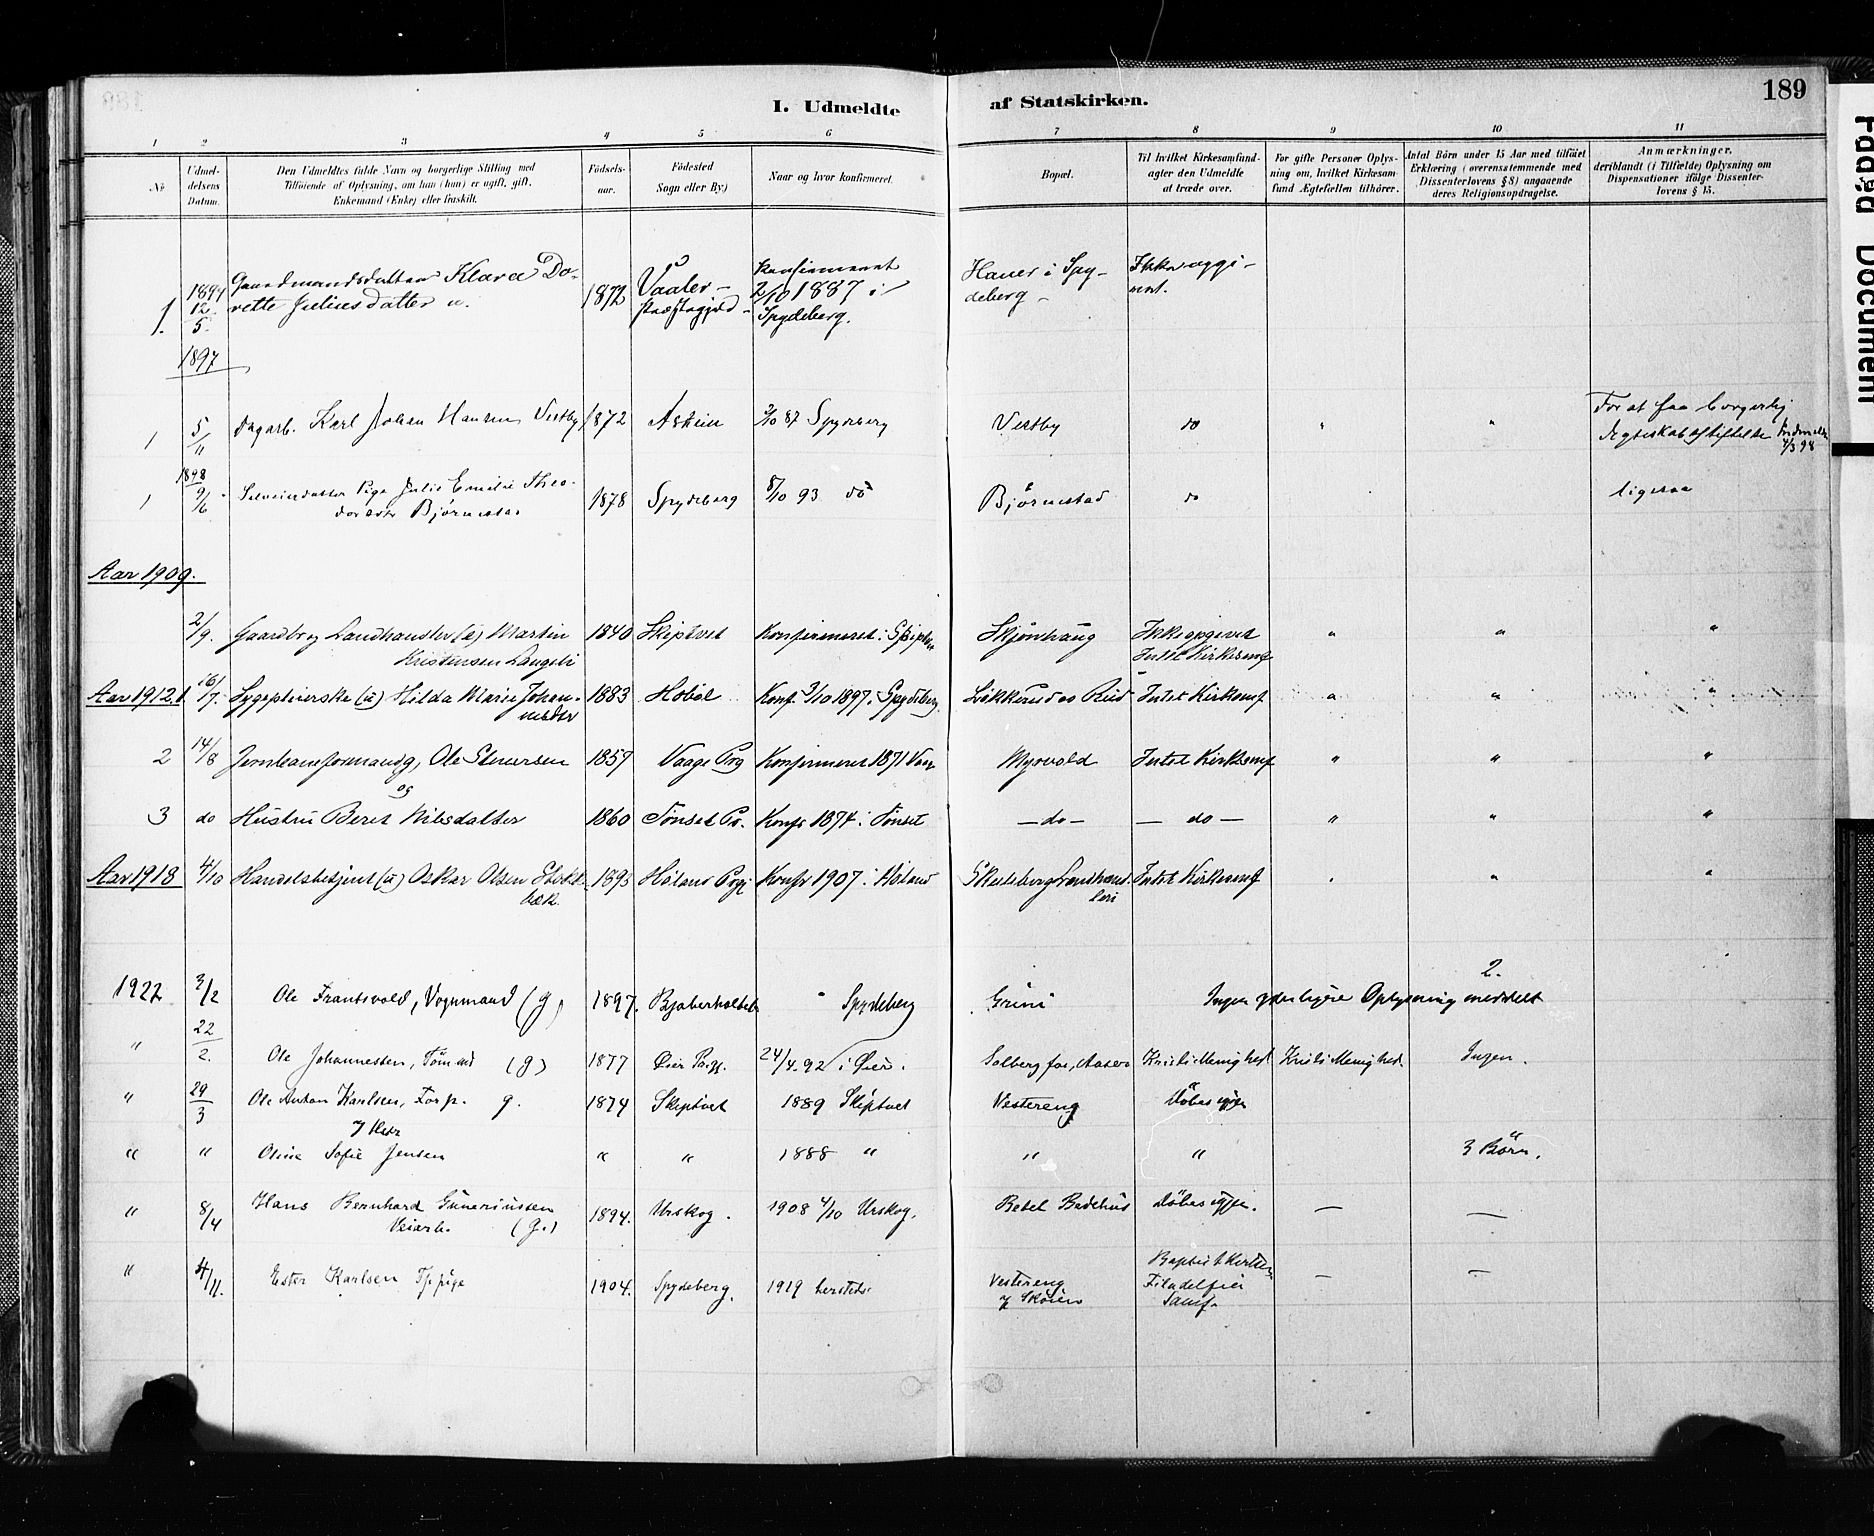 189
I. Udmeldte af Statskirken.
1 2 3 4 5 6 7 8 9 10 11
No
Udmeldelsens Datum.
Den Udmeldtes fulde Navn og borgerlige Stilling med
Tilföiende af Oplysning, om han (hun) er ugift, gift,
Enkemand (Enke) eller fraskilt.
Födselsaar.
Födested
Sogn eller By)
Naar og hvor konfirmeret.
Bopæl.
Til hvilket Kirkesamfund
agter den Udmeldte
at træde over.
For gifte Personer Oplysning
om, hvilket Kirkesamfund
Ægtefællen tilhörer.
Antal Börn under 15 Aar med tilföiet
Erklæring (overensstemmende med
Dissenterlovens § 8) angaaende
deres Religionsopdragelse.
Anmærkninger,
deriblandt (i Tilfælde) Oplysning om
Dispensationer ifölge Dissenterlovens
§ 15.
1. 1894 12/5. Gaardmandsdatter Klara Do-
rette Juliusdatter u. 1872 Vaaler - Præstegjeld - Konfirmeret 2/10 1887 i Spydeberg. Haver i Spy-
deberg - Ikke oppgi-
vet.
1897
1 5/11 Dagarb. Karl Johan Hansen Vestby 1872 Askim 2/10 87 Spydeberg Vestby do " " For at faa borgerlig
Ægteskabsstiftelse Indmeldt 4/3 98
1898
1 9/6 Pige Julie Emilie Theo-
dorsdtr Björnestad 1878 Spydeberg 8/10 93 do Björnestad do ligesaa
Aar 1909.
2/9. Gaardbr og Landhandler (u) Martin
Kristensen Langeli 1840 Skiptvet Konfirmeret i Skiptvet Skjönhaug Ikke opgivet
Intet Kirkesamf " " "
Aar 1912. 1 16/7. Sygepleierske (u) Hilda Marie Johan-
nesdtr 1883 Hobøl Konf. 3/10 1897 i Spydeberg. Løkkerud Intet Kirkesamf " " "
2 14/8 Jernbaneformand g, Ole Stenersen 1857 Vaage Prg Konfirmeret 1871 Vaage Myrvold Intet Kirkesamf " " "
og
3 do Hustru Beret Nilsdatter 1860 Tönset Pr. Konfr 1874 i Tönset - do - - do - " " "
Aar 1918 4/10 Handelsbetjent (u) Oskar Olsen
bæk. 1893 Höland Prgj Konfr 1907 i Höland Landhand-
leri Intet Kirkesamf " " "
2.
1922 3/2 Ole Frantsvold, Vognmand (g) 1897. " Spydeberg Grini Ingen yderligere Oplysning meddelt
" 22/2. Ole Johannessen, Tömmerm (g) 1877 Öier Prgj. 24/4. 92 i Öier. Solbergfos, Kristi Menighed Kristi Menighed. Ingen.
" 29/3 Ole Anton Karlsen, Forp. g. 1874 Skiptvet 1889 Skiptvet Vestereng Döbes igjen
og Hstr
" " Oline Sofie Jensen " " 1888 " " " 3 Börn.
" 8/4 Hans Bernhard Gunerinssen
Veiarb. (g.) 1894. Urskog. 1908 4/10 Urskog. Betel Bedehus Döbes igjen. — —
" 4/11. Ester Karlsen Tj.pige 1904. Spydeberg. 1919 hersteds. Vestereng
Baptistkirken
Filadelfia
Samf. — —
Faded Document